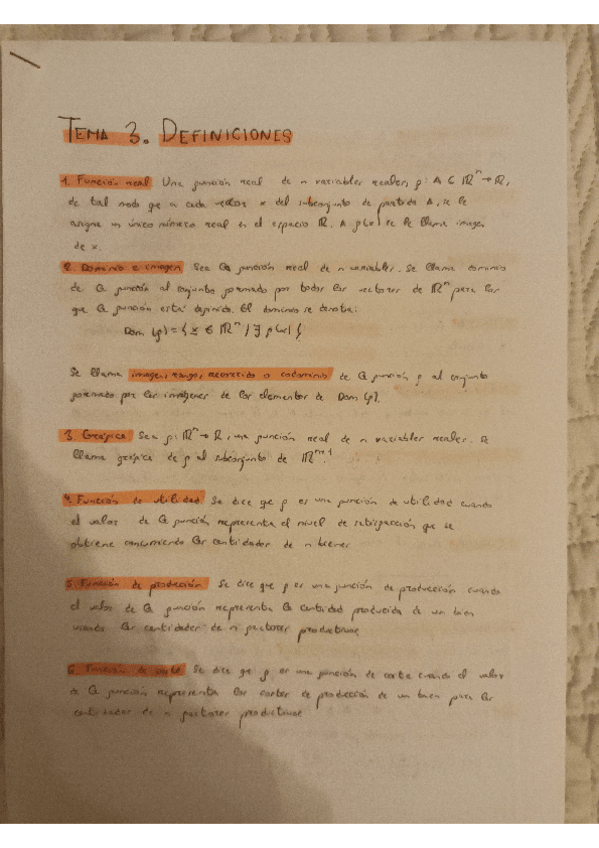 TEMA 3. DEFINICIONES
1. Función real Una función real de n variables reales, f: A ⊂ ℝⁿ → ℝ,
de tal modo que a cada vector x del subconjunto de partida A, se le
asigna un único número real en el espacio ℝ. A f(x) se le llama imagen
de x.
2. Dominio e imagen Sea la función real de n variables. Se llama dominio
de la función al conjunto formado por todos los vectores de ℝⁿ para los
que la función está definida. El dominio se denota:
Dom (f) = { x ∈ ℝⁿ / ∃ f(x) }
Se llama imagen, rango, recorrido o codominio de la función f al conjunto
formado por las imágenes de los elementos de Dom (f).
3. Gráfica Sea f: ℝⁿ → ℝ, una función real de n variables reales. Se
llama gráfica de f al subconjunto de ℝⁿ⁺¹.
4. Función de utilidad Se dice que f es una función de utilidad cuando
el valor de la función representa el nivel de satisfacción que se
obtiene consumiendo las cantidades de n bienes
5. Función de producción Se dice que f es una función de producción cuando
el valor de la función representa la cantidad producida de un bien
usando las cantidades de n factores productivos
6. Función de coste Se dice que f es una función de coste cuando el valor
de la función representa los costes de producción de un bien para las
cantidades de n factores productivos